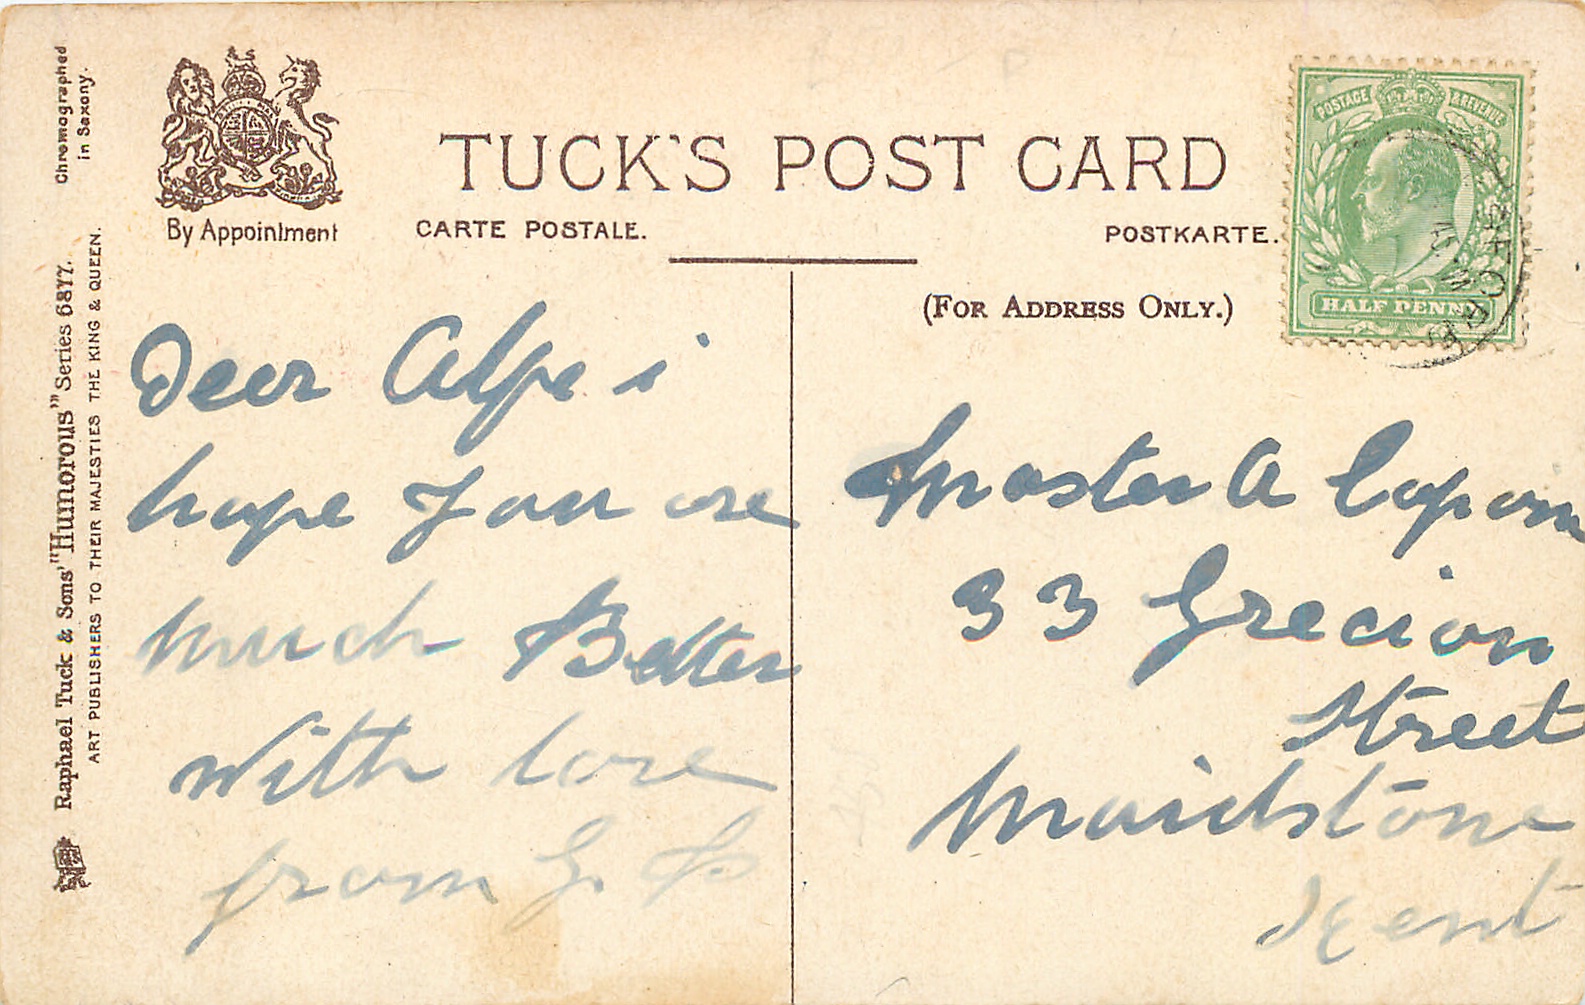 Chromographed
in Saxony.
Raphael Tuck & Sons' "Humorous" Series 6877.
ART PUBLISHERS TO THEIR MAJESTIES THE KING & QUEEN.
By Appointment
TUCK'S POST CARD
CARTE POSTALE.
POSTKARTE.
(FOR ADDRESS ONLY.)
POSTAGE & REVENUE
HALF PENNY
Dear Alfe i
hope you are
much Better
with love
from G. B
Master A Capon
33 Grecian
Street
Maidstone
Kent